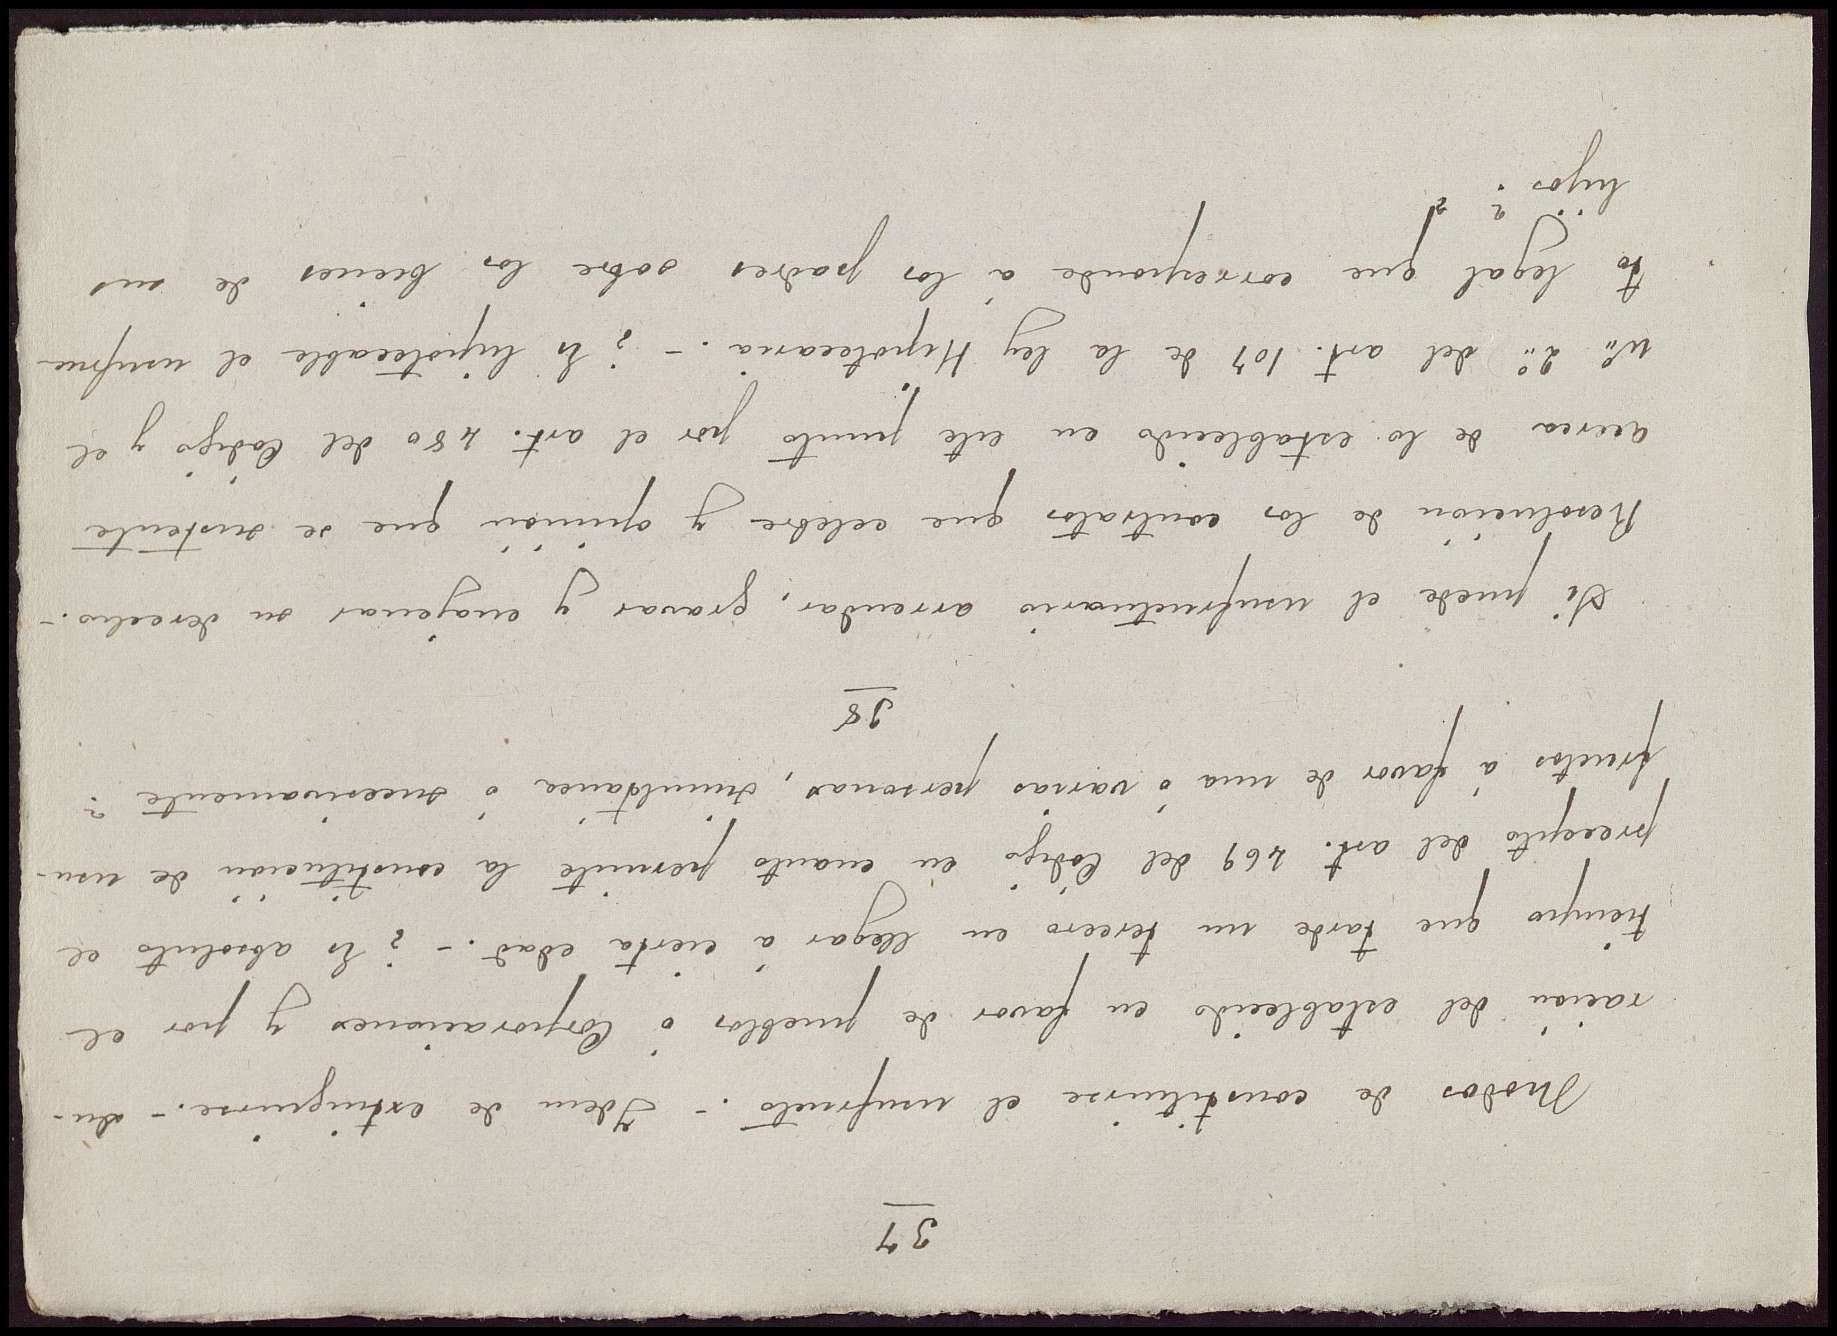 37
Modos de constituirse el usufructo. - Idem de extinguirse. - Du-
ración del establecido en favor de pueblos ó Corporaciones y por el
tiempo que tarde un tercero en llegar á cierta edad. - ¿Es absoluto el
precepto del art. 469 del Código en cuanto permite la constitución de usu-
fructos á favor de una ó varias personas, simultánea ó sucesivamente?
38
Si puede el usufructuario arrendar, gravar y enajenar su derecho. -
Resolución de los contratos que celebre y opinión que se sustente
acerca de lo establecido en este punto por el art. 480 del Código y el
nº 2º del art. 107 de la ley Hipotecaria. - ¿Es hipotecable el usufruc-
to legal que corresponde á los padres sobre los bienes de sus
hijos?